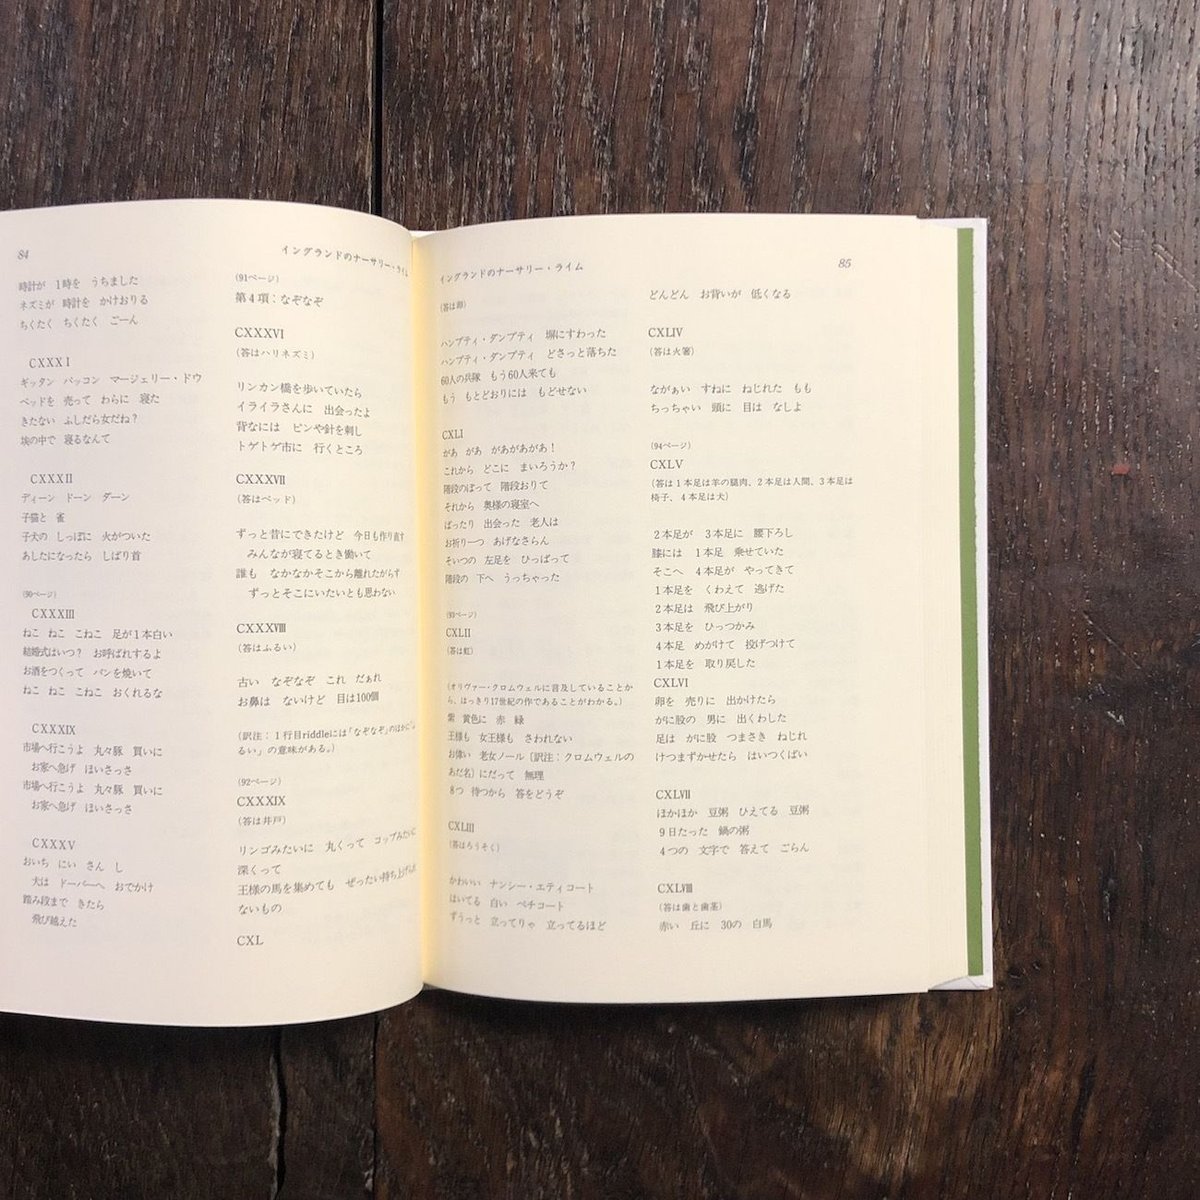 84
イングランドのナーサリー・ライム
時計が 1時を うちました
ネズミが 時計を かけおりる
ちくたく ちくたく ごーん
CXXXI
ギッタン バッコン マージェリー・ドウ
ベッドを 売って わらに 寝た
きたない ふしだら女だね?
埃の中で 寝るなんて
CXXXII
ディーン ドーン ダーン
子猫と 雀
子犬の しっぽに 火がついた
あしたになったら しばり首
(90ページ)
CXXXIII
ねこ ねこ こねこ 足が1本白い
結婚式はいつ? お呼ばれするよ
お酒をつくって パンを焼いて
ねこ ねこ こねこ おくれるな
CXXXIX
市場へ行こうよ 丸々豚 買いに
お家へ急げ ほいさっさ
市場へ行こうよ 丸々豚 買いに
お家へ急げ ほいさっさ
CXXXV
おいち にい さん し
犬は ドーバーへ おでかけ
踏み段まで きたら
飛び越えた
(91ページ)
第4項:なぞなぞ
CXXXVI
(答はハリネズミ)
リンカン橋を歩いていたら
イライラさんに 出会ったよ
背なには ピンや針を刺し
トゲトゲ市に 行くところ
CXXXVII
(答はベッド)
ずっと昔にできたけど 今日も作り直す
みんなが寝てるとき働いて
誰も なかなかそこから離れたがらず
ずっとそこにいたいとも思わない
CXXXVIII
(答はふるい)
古い なぞなぞ これ だぁれ
お鼻は ないけど 目は100個
(訳注:1行目riddleには「なぞなぞ」のほかに「ふ
るい」の意味がある。)
(92ページ)
CXXXIX
(答は井戸)
リンゴみたいに 丸くって コップみたいに
深くって
王様の馬を集めても ぜったい持ち上げられ
ないもの
CXL
イングランドのナーサリー・ライム
85
(答は卵)
ハンプティ・ダンプティ 塀にすわった
ハンプティ・ダンプティ どさっと落ちた
60人の兵隊 もう60人来ても
もう もとどおりには もどせない
CXLI
があ があ があがあがあ!
これから どこに まいろうか?
階段のぼって 階段おりて
それから 奥様の寝室へ
ばったり 出会った 老人は
お祈り一つ あげなさらん
そいつの 左足を ひっぱって
階段の 下へ うっちゃった
(93ページ)
CXLII
(答は虹)
(オリヴァー・クロムウェルに言及していることか
ら、はっきり17世紀の作であることがわかる。)
紫 黄色に 赤 緑
王様も 女王様も さわれない
お偉い 老女ノール〔訳注:クロムウェルの
あだ名〕にだって 無理
8つ 待つから 答をどうぞ
CXLIII
(答はろうそく)
かわいい ナンシー・エティコート
はいてる 白い ペチコート
ずうっと 立ってりゃ 立ってるほど
どんどん お背いが 低くなる
CXLIV
(答は火箸)
ながぁい すねに ねじれた もも
ちっちゃい 頭に 目は なしよ
(94ページ)
CXLV
(答は1本足は羊の腿肉、2本足は人間、3本足は
椅子、4本足は犬)
2本足が 3本足に 腰下ろし
膝には 1本足 乗せていた
そこへ 4本足が やってきて
1本足を くわえて 逃げた
2本足は 飛び上がり
3本足を ひっつかみ
4本足 めがけて 投げつけて
1本足を 取り戻した
CXLVI
卵を 売りに 出かけたら
がに股の 男に 出くわした
足は がに股 つまさき ねじれ
けつまずかせたら はいつくばい
CXLVII
ほかほか 豆粥 ひえてる 豆粥
9日たった 鍋の粥
4つの 文字で 答えて ごらん
CXLVIII
(答は歯と歯茎)
赤い 丘に 30の 白馬